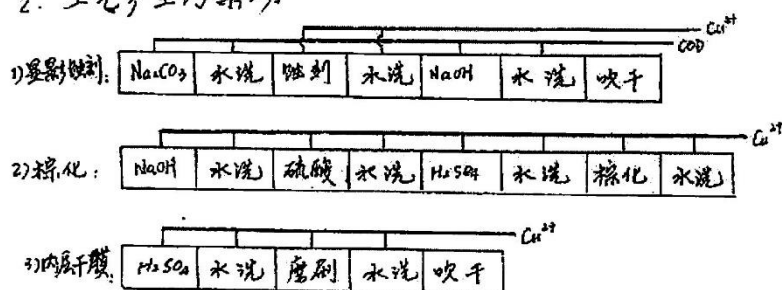 2.
Cu²⁺
COD
1)显影蚀刻: Na₂CO₃ 水洗 蚀刻 水洗 NaOH 水洗 吹干
Cu²⁺
2)棕化: NaOH 水洗 硫酸 水洗 H₂SO₄ 水洗 棕化 水洗
Cu²⁺
3)内层干膜: H₂SO₄ 水洗 磨刷 水洗 吹干